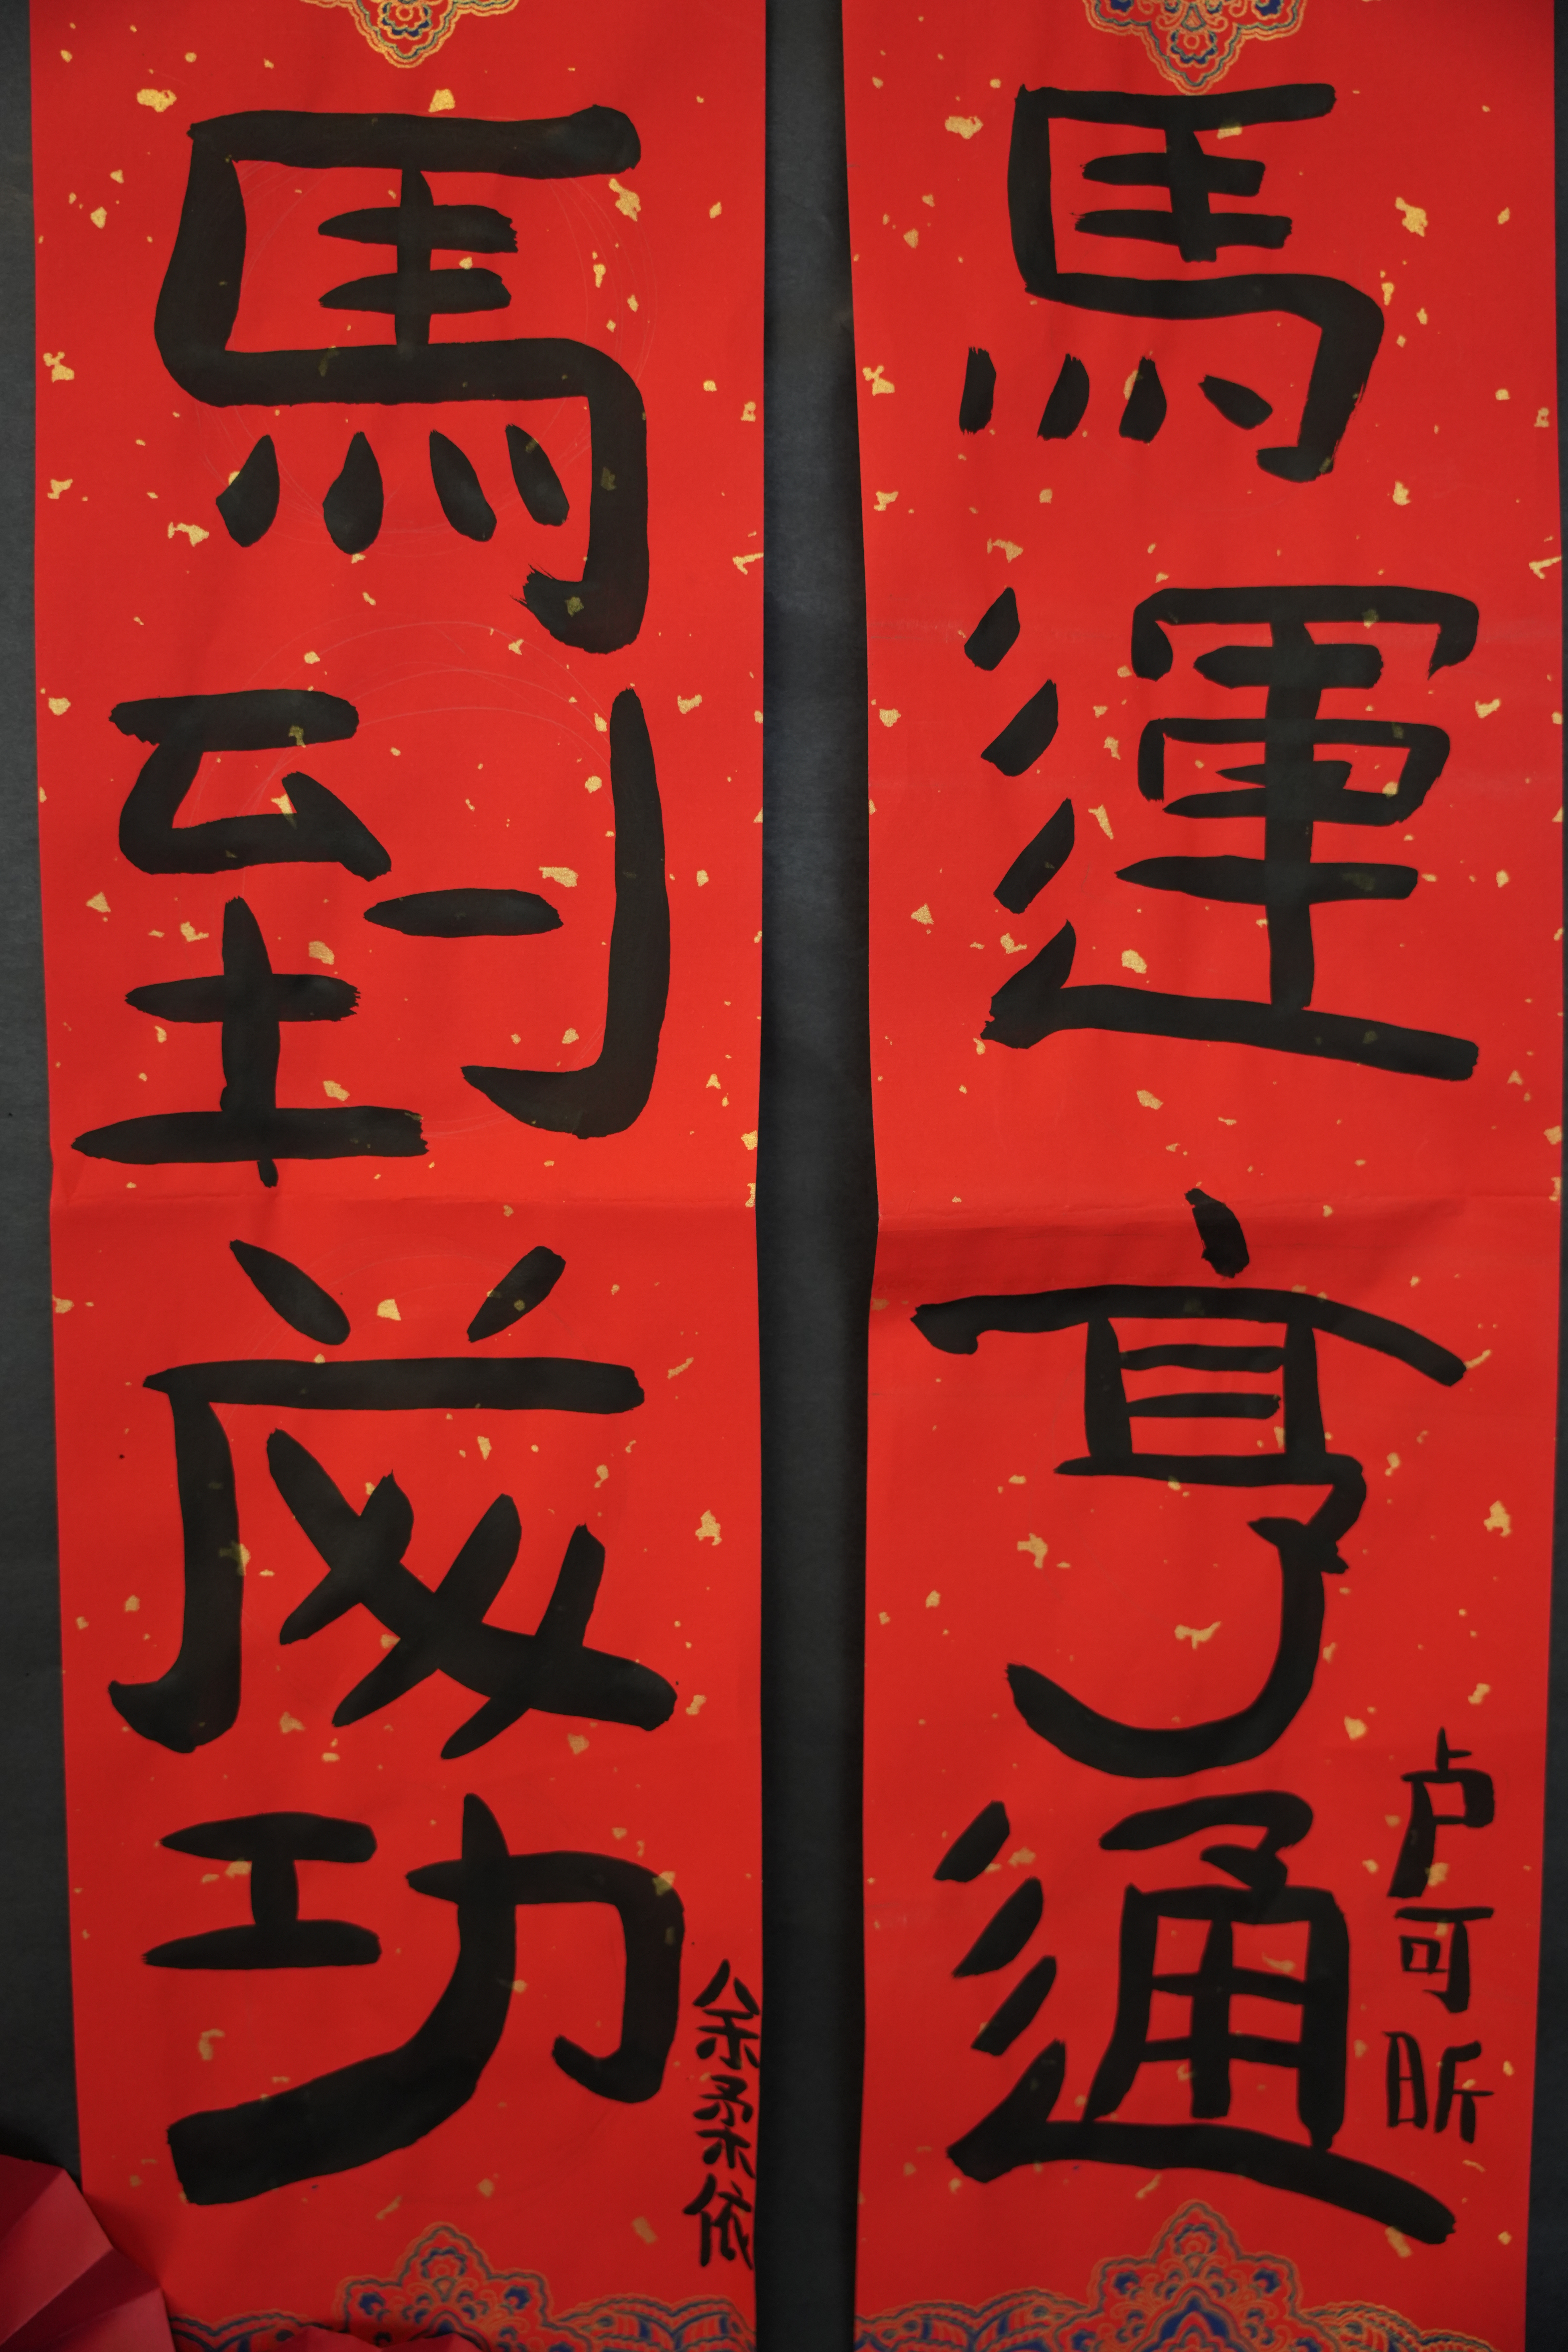 馬運亨通
卢可昕
馬到成功
余柔依